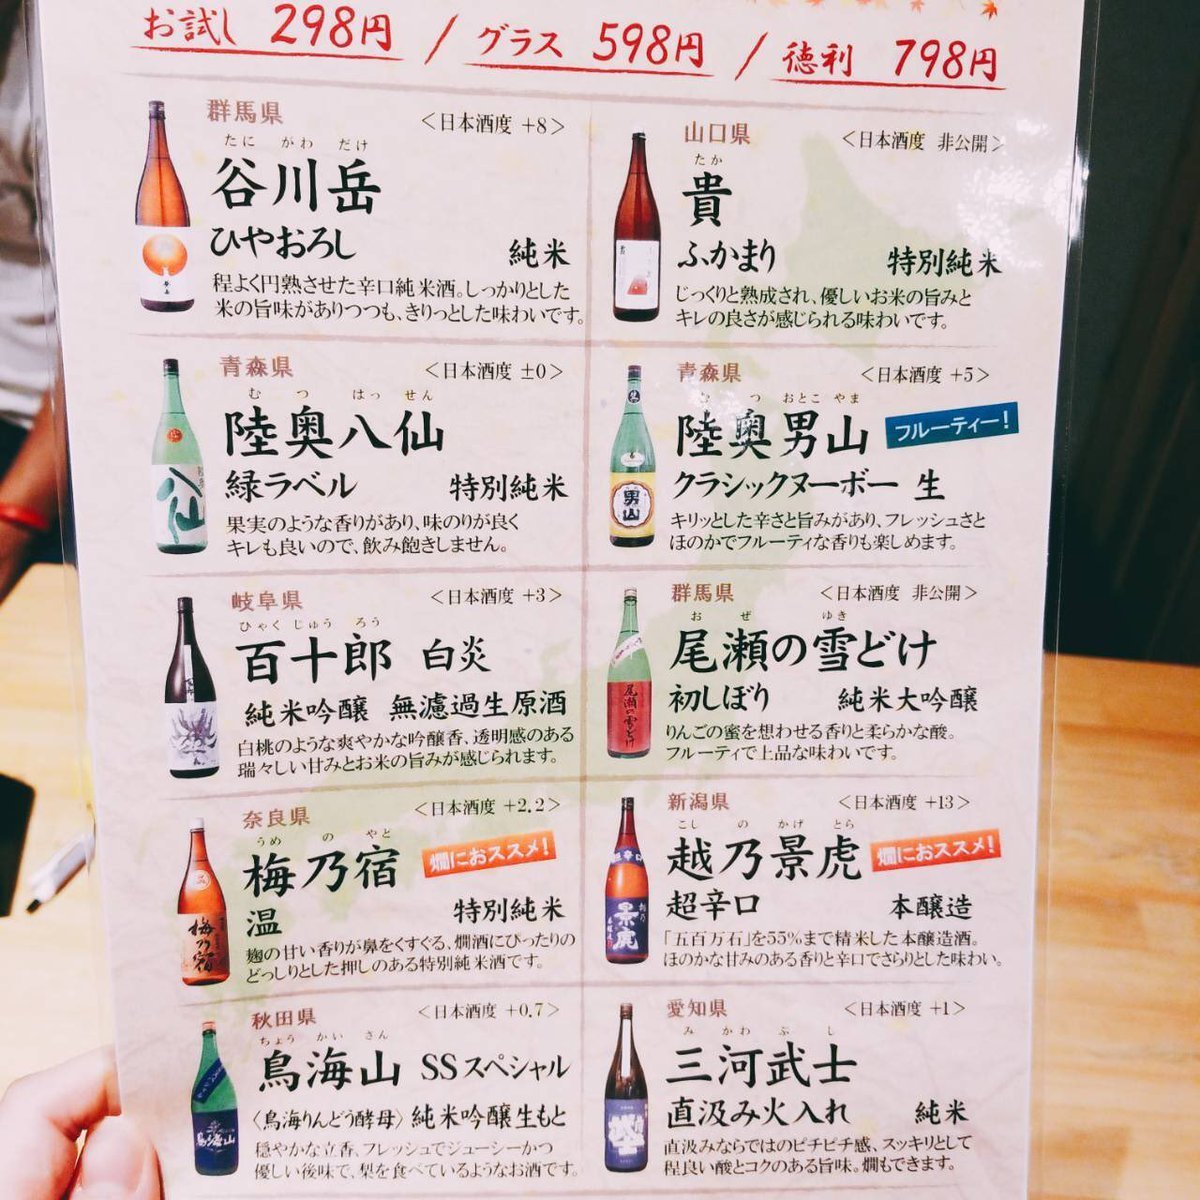 お試し 298円 / グラス 598円 / 徳利 798円
群馬県
<日本酒度 +8>
たに がわ だけ
谷川岳
ひやおろし 純米
程よく円熟させた辛口純米酒。しっかりとした
米の旨味がありつつも、きりっとした味わいです。
山口県
<日本酒度 非公開>
たか
貴
ふかまり 特別純米
じっくりと熟成され、優しいお米の旨みと
キレの良さが感じられる味わいです。
青森県
<日本酒度 ±0>
む つ はっ せん
陸奥八仙
緑ラベル 特別純米
果実のような香りがあり、味のりが良く
キレも良いので、飲み飽きしません。
青森県
<日本酒度 +5>
む つ おとこ やま
陸奥男山 フルーティー!
クラシックヌーボー 生
キリッとした辛さと旨みがあり、フレッシュさと
ほのかでフルーティな香りも楽しめます。
岐阜県
<日本酒度 +3>
ひゃく じゅう ろう
百十郎 白炎
純米吟醸 無濾過生原酒
白桃のような爽やかな吟醸香、透明感のある
瑞々しい甘みとお米の旨みが感じられます。
群馬県
<日本酒度 非公開>
お ぜ ゆき
尾瀬の雪どけ
初しぼり 純米大吟醸
りんごの蜜を想わせる香りと柔らかな酸。
フルーティで上品な味わいです。
奈良県
<日本酒度 +2.2>
うめ の やと
梅乃宿 燗におススメ!
温 特別純米
麹の甘い香りが鼻をくすぐる、燗酒にぴったりの
どっしりとした押しのある特別純米酒です。
新潟県
<日本酒度 +13>
こし の かげ とら
越乃景虎 燗におススメ!
超辛口 本醸造
「五百万石」を55%まで精米した本醸造酒。
ほのかな甘みのある香りと辛口でさらりとした味わい。
秋田県
<日本酒度 +0.7>
ちょう かい さん
鳥海山 SSスペシャル
〈鳥海りんどう酵母〉 純米吟醸生もと
穏やかな立香、フレッシュでジューシーかつ
優しい後味で、梨を食べているようなお酒です。
愛知県
<日本酒度 +1>
み かわ ぶ し
三河武士
直汲み火入れ 純米
直汲みならではのピチピチ感、スッキリとして
程良い酸とコクのある旨味。燗もできます。
八仙
男山
尾瀬の雪どけ
梅乃宿
超辛口
越乃
景虎
鳥海山